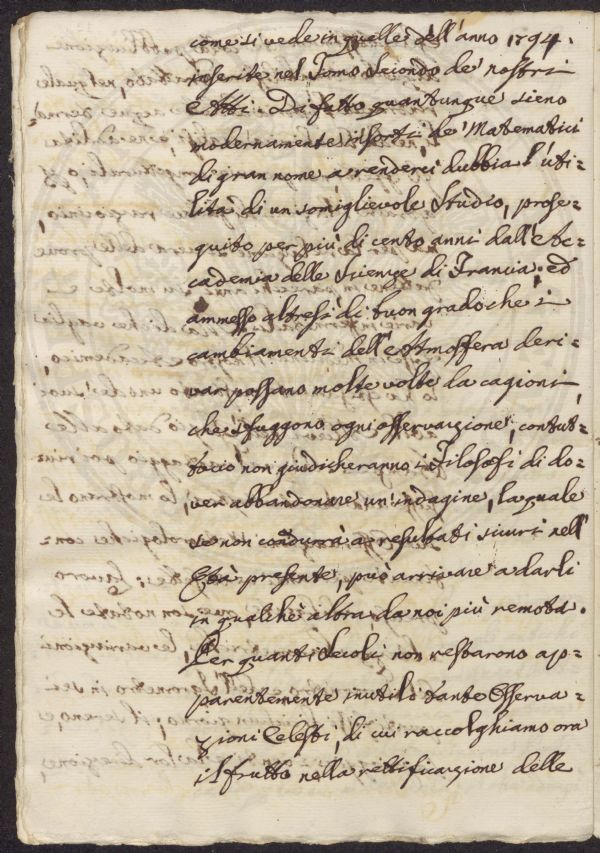 come si vede in quelle dell'anno 1794.
inserite nel Tomo Secondo de' nostri
Atti. Di fatto quantunque sieno
modernamente insorti de' Matematici
di gran nome a renderci dubbia l'uti-
lità di un somiglievole Studio, prose-
guito per più di cento anni dall'Ac-
cademia delle Scienze di Francia. ed
ammesso altresì di buon grado che i
cambiamenti dell'Atmosfera deri-
var possano molte volte da cagioni
che sfuggono ogni osservazione, contut-
tociò non giudicheranno i Filosofi di do-
ver abbandonare un'indagine, la quale
se non condurrà a resultati sicuri nell'
Età presente, può arrivare a darli
in qualche altra da noi più remota.
Per quanti Secoli non restarono ap-
parentemente inutili tante Osserva-
zioni Celesti, di cui raccolghiamo ora
il frutto nella rettificazione delle